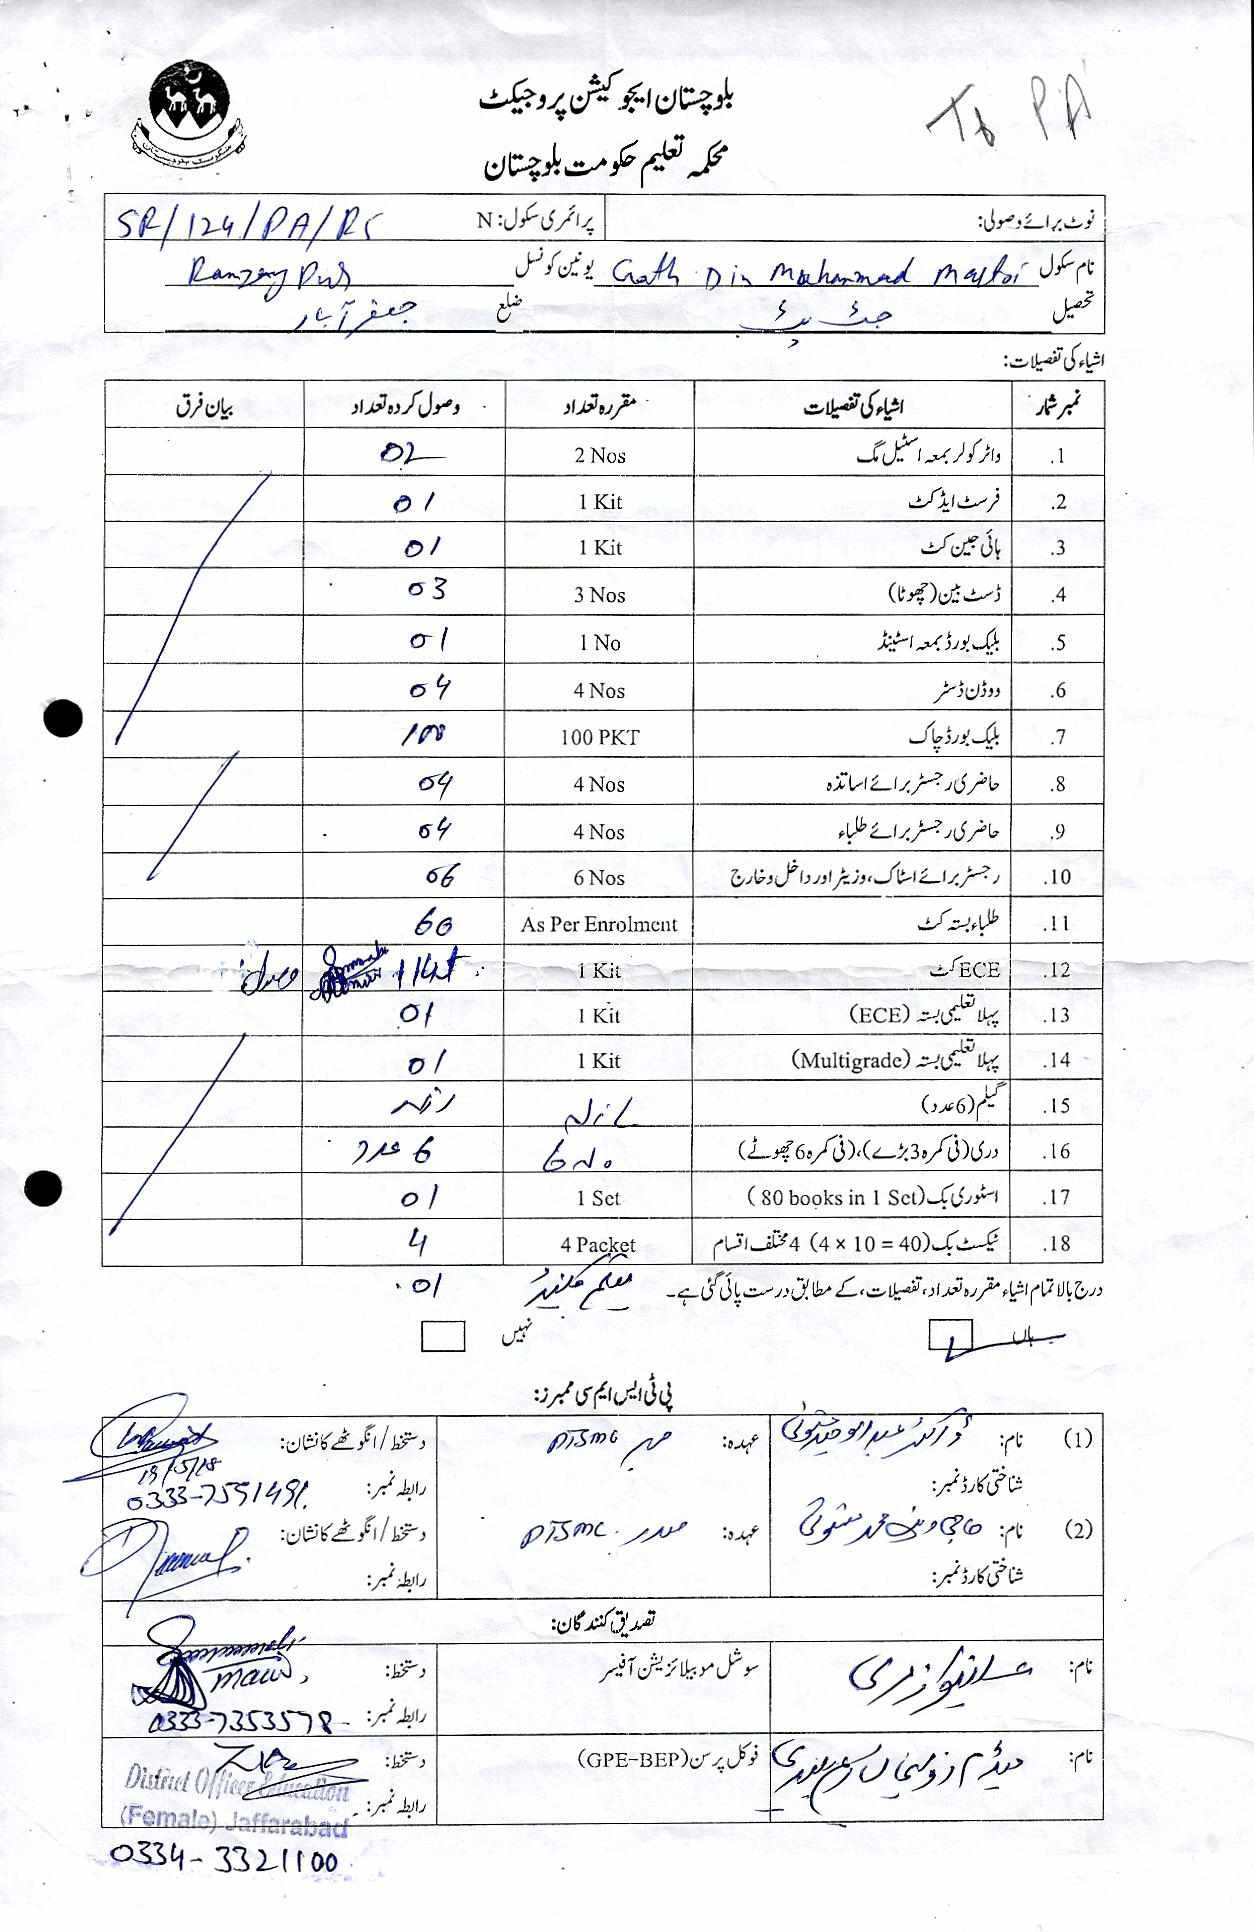 To PA
بلوچستان ایجوکیشن پروجیکٹ
محکمہ تعلیم حکومت بلوچستان
نوٹ برائے وصولی: پرائمری سکول: N SR/124/PA/RS
نام سکول Goth Din Mohammad Mastoi یونین کونسل
تحصیل جھٹ پٹ ضلع جعفر آباد
اشیاء کی تفصیلات:
نمبر شمار اشیاء کی تفصیلات مقررہ تعداد وصول کردہ تعداد بیان فرق
1. واٹر کولر بمعہ اسٹیل مگ 2 Nos 02
2. فرسٹ ایڈ کٹ 1 Kit 01
3. ہائی جین کٹ 1 Kit 01
4. ڈسٹ بین (چھوٹا) 3 Nos 03
5. بلیک بورڈ بمعہ اسٹینڈ 1 No 01
6. ووڈن ڈسٹر 4 Nos 04
7. بلیک بورڈ چاک 100 PKT 100
8. حاضری رجسٹر برائے اساتذہ 4 Nos 04
9. حاضری رجسٹر برائے طلباء 4 Nos 04
10. رجسٹر برائے اسٹاک، وزیٹر اور داخل و خارج 6 Nos 06
11. طلباء بستہ کٹ As Per Enrolment 60
12. ECE کٹ 1 Kit 1 Kit وصول
13. پہلا تعلیمی بستہ (ECE) 1 Kit 01
14. پہلا تعلیمی بستہ (Multigrade) 1 Kit 01
15. گیلم (6 عدد)
16. دری (فی کمرہ 3 بڑے)، (فی کمرہ 6 چھوٹے) 6 No 6 عدد
17. اسٹوری بک (80 books in 1 Set) 1 Set 01
18. ٹیکسٹ بک (4 × 10 = 40) 4 مختلف اقسام 4 Packet 4
درج بالا تمام اشیاء مقررہ تعداد، تفصیلات، کے مطابق درست پائی گئی ہے۔ 01
ہاں نہیں
پی ٹی ایس ایم سی ممبرز:
(1) نام: عہدہ: ممبر PTSMC دستخط / انگوٹھے کا نشان:
19/5/18
شناختی کارڈ نمبر: رابطہ نمبر: 0333-7591491
(2) نام: حاجی دین محمد مستوئی عہدہ: صدر PTSMC دستخط / انگوٹھے کا نشان:
شناختی کارڈ نمبر: رابطہ نمبر:
تصدیق کنندگان:
نام: سوشل موبیلائزیشن آفیسر دستخط:
رابطہ نمبر: 0333-7353578
نام: فوکل پرسن (GPE-BEP) دستخط:
رابطہ نمبر:
District Officer Education
(Female) Jaffarabad
0334-3321100